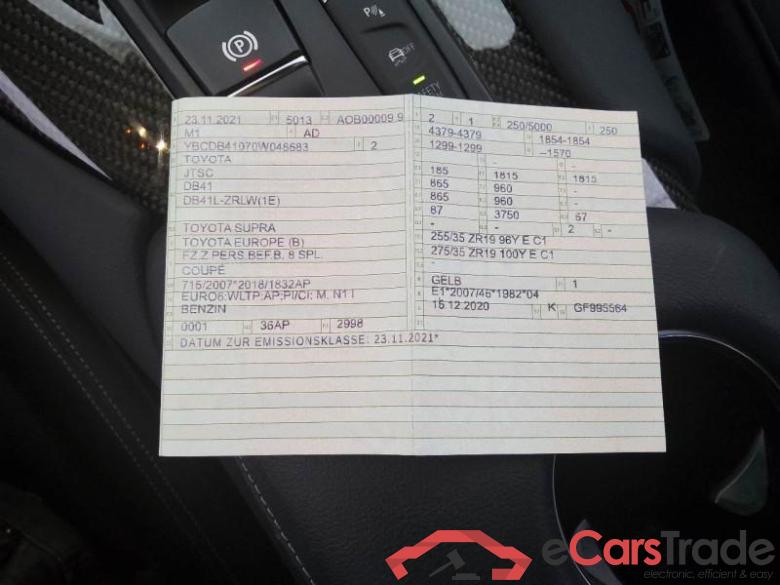 23.11.2021 5013 AOB00009 9
M1 AD
YBCDB41070W048683 2
TOYOTA
JTSC
DB41
DB41L-ZRLW(1E)
TOYOTA SUPRA
TOYOTA EUROPE (B)
FZ.Z.PERS.BEF.B. 8 SPL.
COUPÉ
715/2007*2018/1832AP
EURO6;WLTP;AP;PI/CI; M, N1 I
BENZIN
0001 36AP 2998
DATUM ZUR EMISSIONSKLASSE: 23.11.2021*
2 1 250/5000 250
4379-4379 1854-1854
1299-1299 --1570
- -
185 1815 1815
865 960 -
865 960 -
87 3750 67
- - - 2 -
255/35 ZR19 96Y E C1
275/35 ZR19 100Y E C1
-
GELB 1
E1*2007/46*1982*04
15.12.2020 K GF995564
P
OFF
eCarsTrade
electronic, efficient & easy